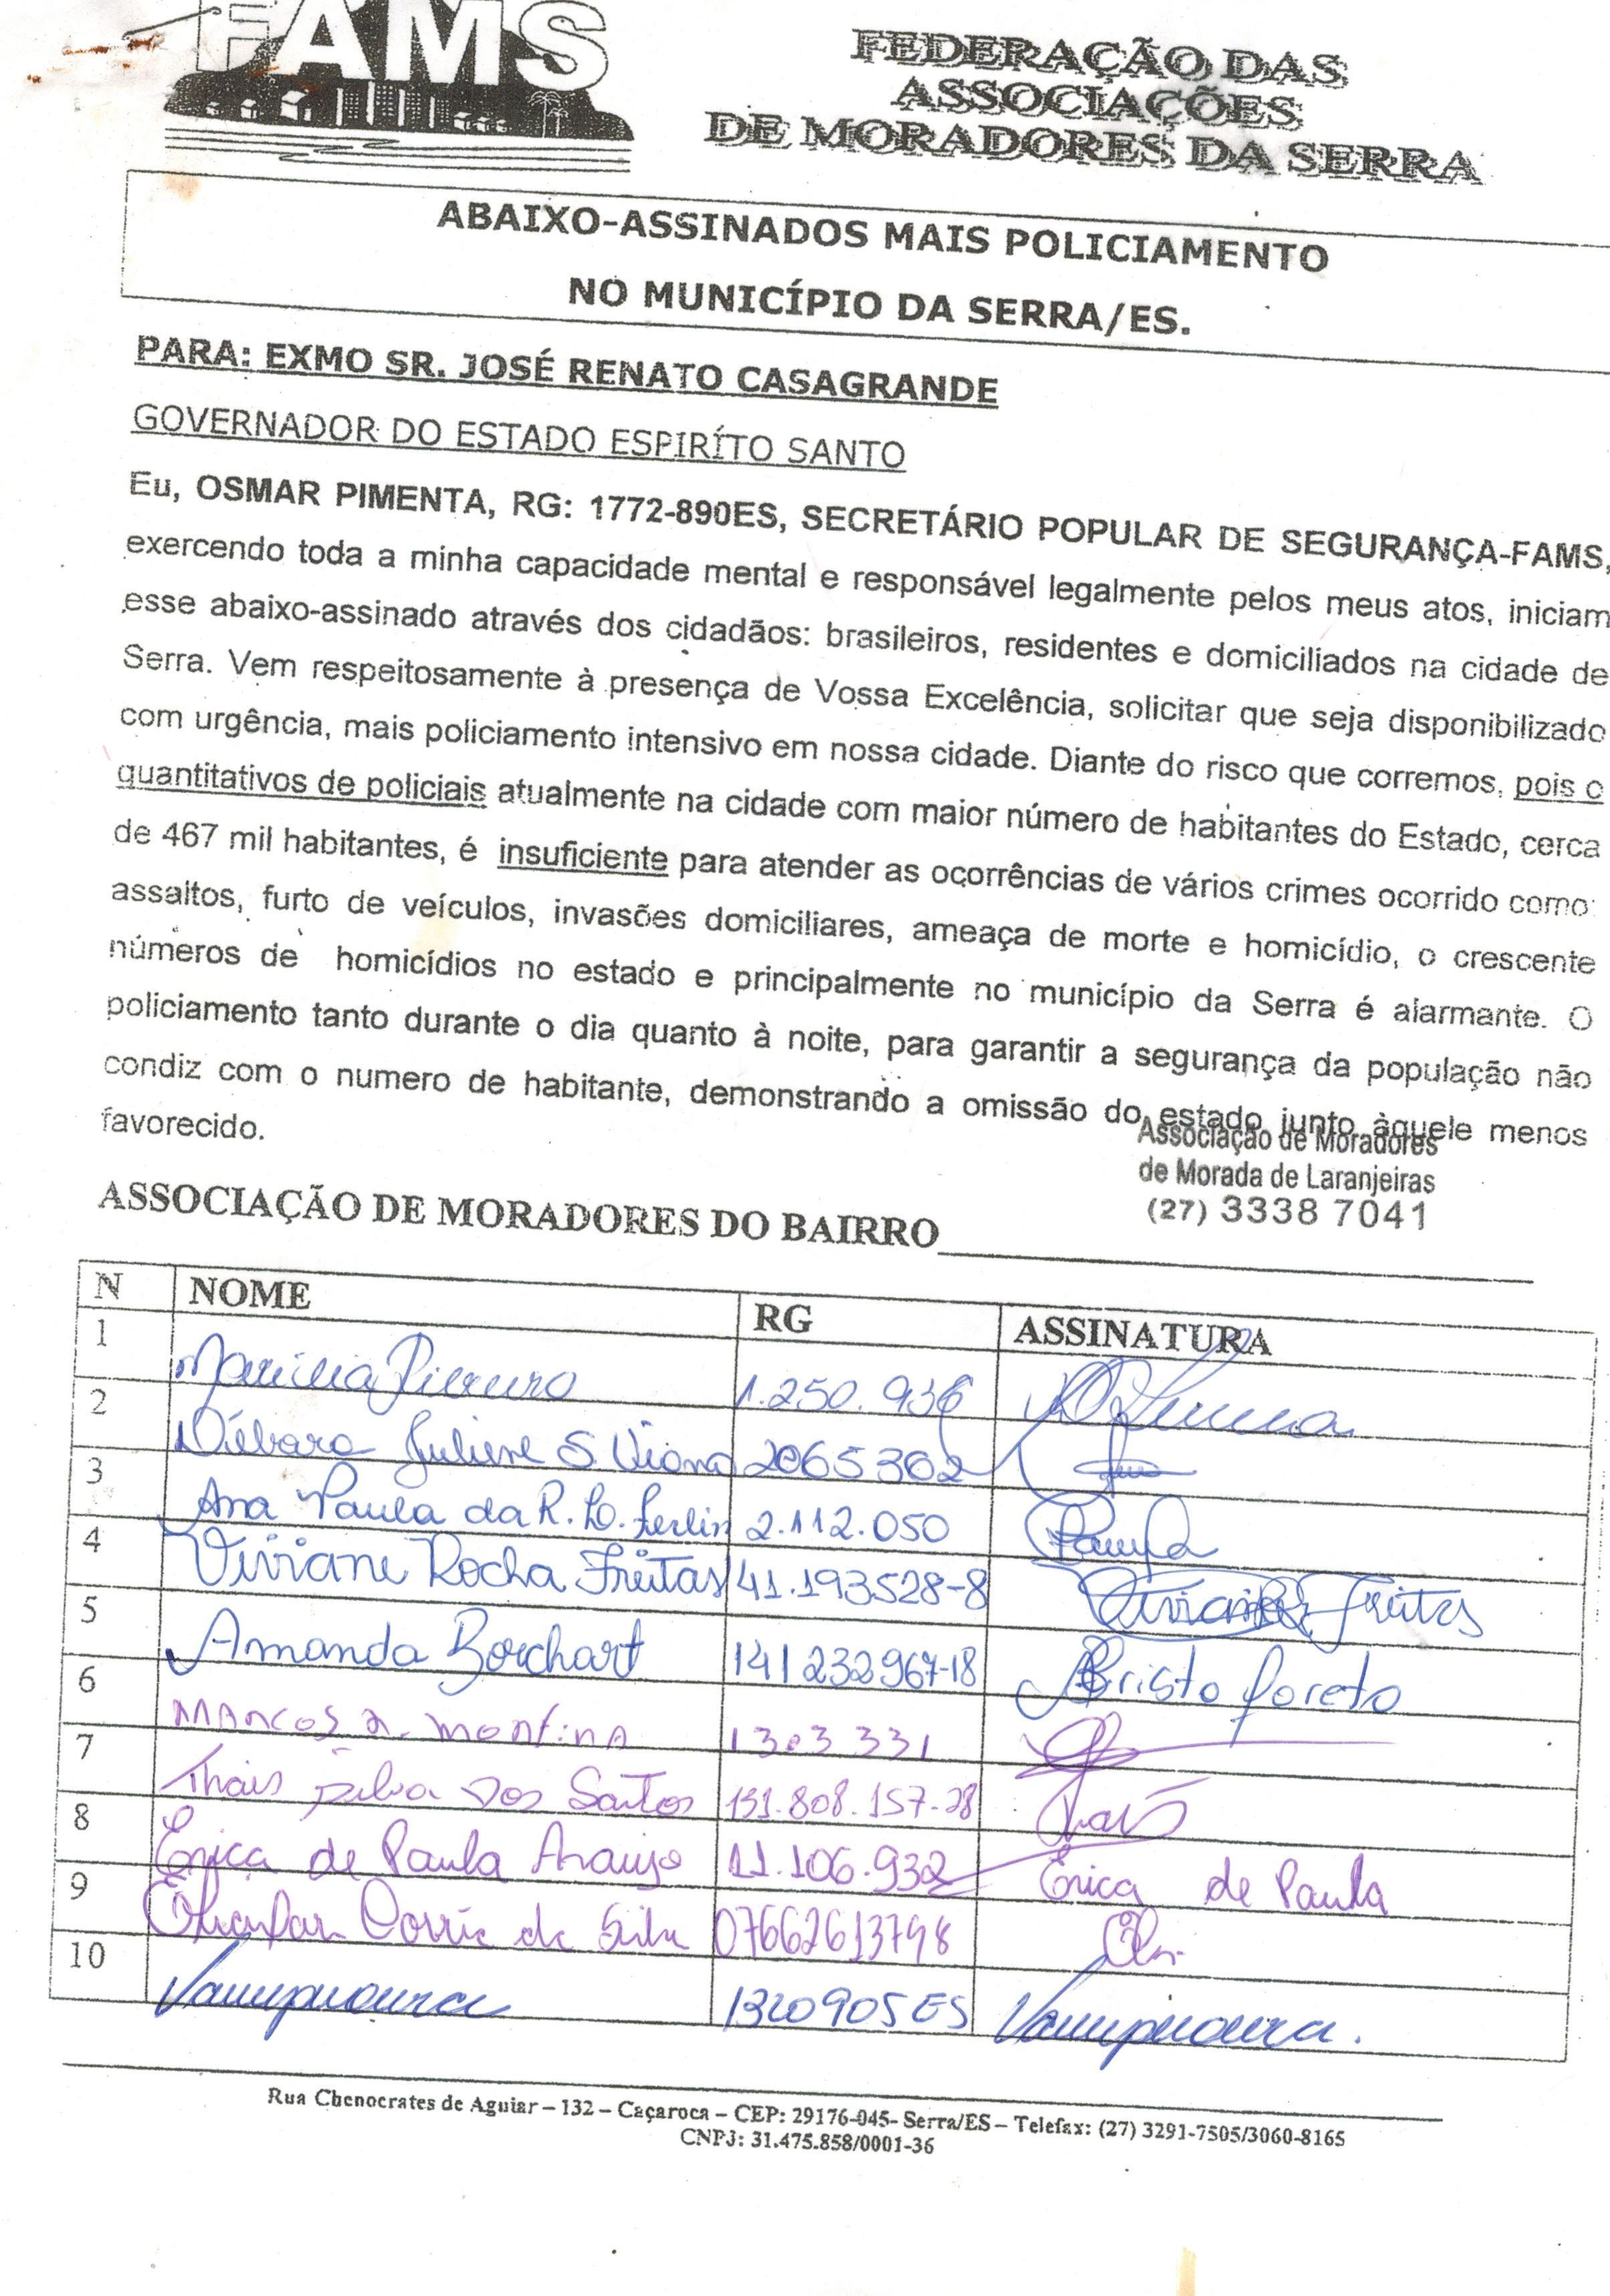 FAMS
FEDERAÇÃO DAS
ASSOCIAÇÕES
DE MORADORES DA SERRA
ABAIXO-ASSINADOS MAIS POLICIAMENTO
NO MUNICÍPIO DA SERRA/ES.
PARA: EXMO SR. JOSÉ RENATO CASAGRANDE
GOVERNADOR DO ESTADO ESPIRÍTO SANTO
Eu, OSMAR PIMENTA, RG: 1772-890ES, SECRETÁRIO POPULAR DE SEGURANÇA-FAMS,
exercendo toda a minha capacidade mental e responsável legalmente pelos meus atos, iniciam
esse abaixo-assinado através dos cidadãos: brasileiros, residentes e domiciliados na cidade de
Serra. Vem respeitosamente à presença de Vossa Excelência, solicitar que seja disponibilizado
com urgência, mais policiamento intensivo em nossa cidade. Diante do risco que corremos, pois o
quantitativos de policiais atualmente na cidade com maior número de habitantes do Estado, cerca
de 467 mil habitantes, é insuficiente para atender as ocorrências de vários crimes ocorrido como:
assaltos, furto de veículos, invasões domiciliares, ameaça de morte e homicídio, o crescente
números de homicídios no estado e principalmente no município da Serra é alarmante. O
policiamento tanto durante o dia quanto à noite, para garantir a segurança da população não
condiz com o numero de habitante, demonstrando a omissão do estado junto àquele menos
favorecido.
Associação de Moradores
de Morada de Laranjeiras
(27) 3338 7041
ASSOCIAÇÃO DE MORADORES DO BAIRRO
N NOME RG ASSINATURA
1 1.250.936
2 Débara Juliene S Viana 2065302
3 Ana Paula da R. L. 2.112.050 Paula
4 Viviane Rocha Freitas 41.193528-8 Freitas
5 Amanda Borchart 141232967-18
6 Marcos 1303331
7 Thais Silva Dos Santos 151.808.157-28 Thais
8 Erica de Paula Araujo 11.106.932 Erica de Paula
9 07662613798
10 1320905ES
Rua Chenocrates de Aguiar – 132 – Caçaroca – CEP: 29176-045- Serra/ES – Telefax: (27) 3291-7505/3060-8165
CNPJ: 31.475.858/0001-36